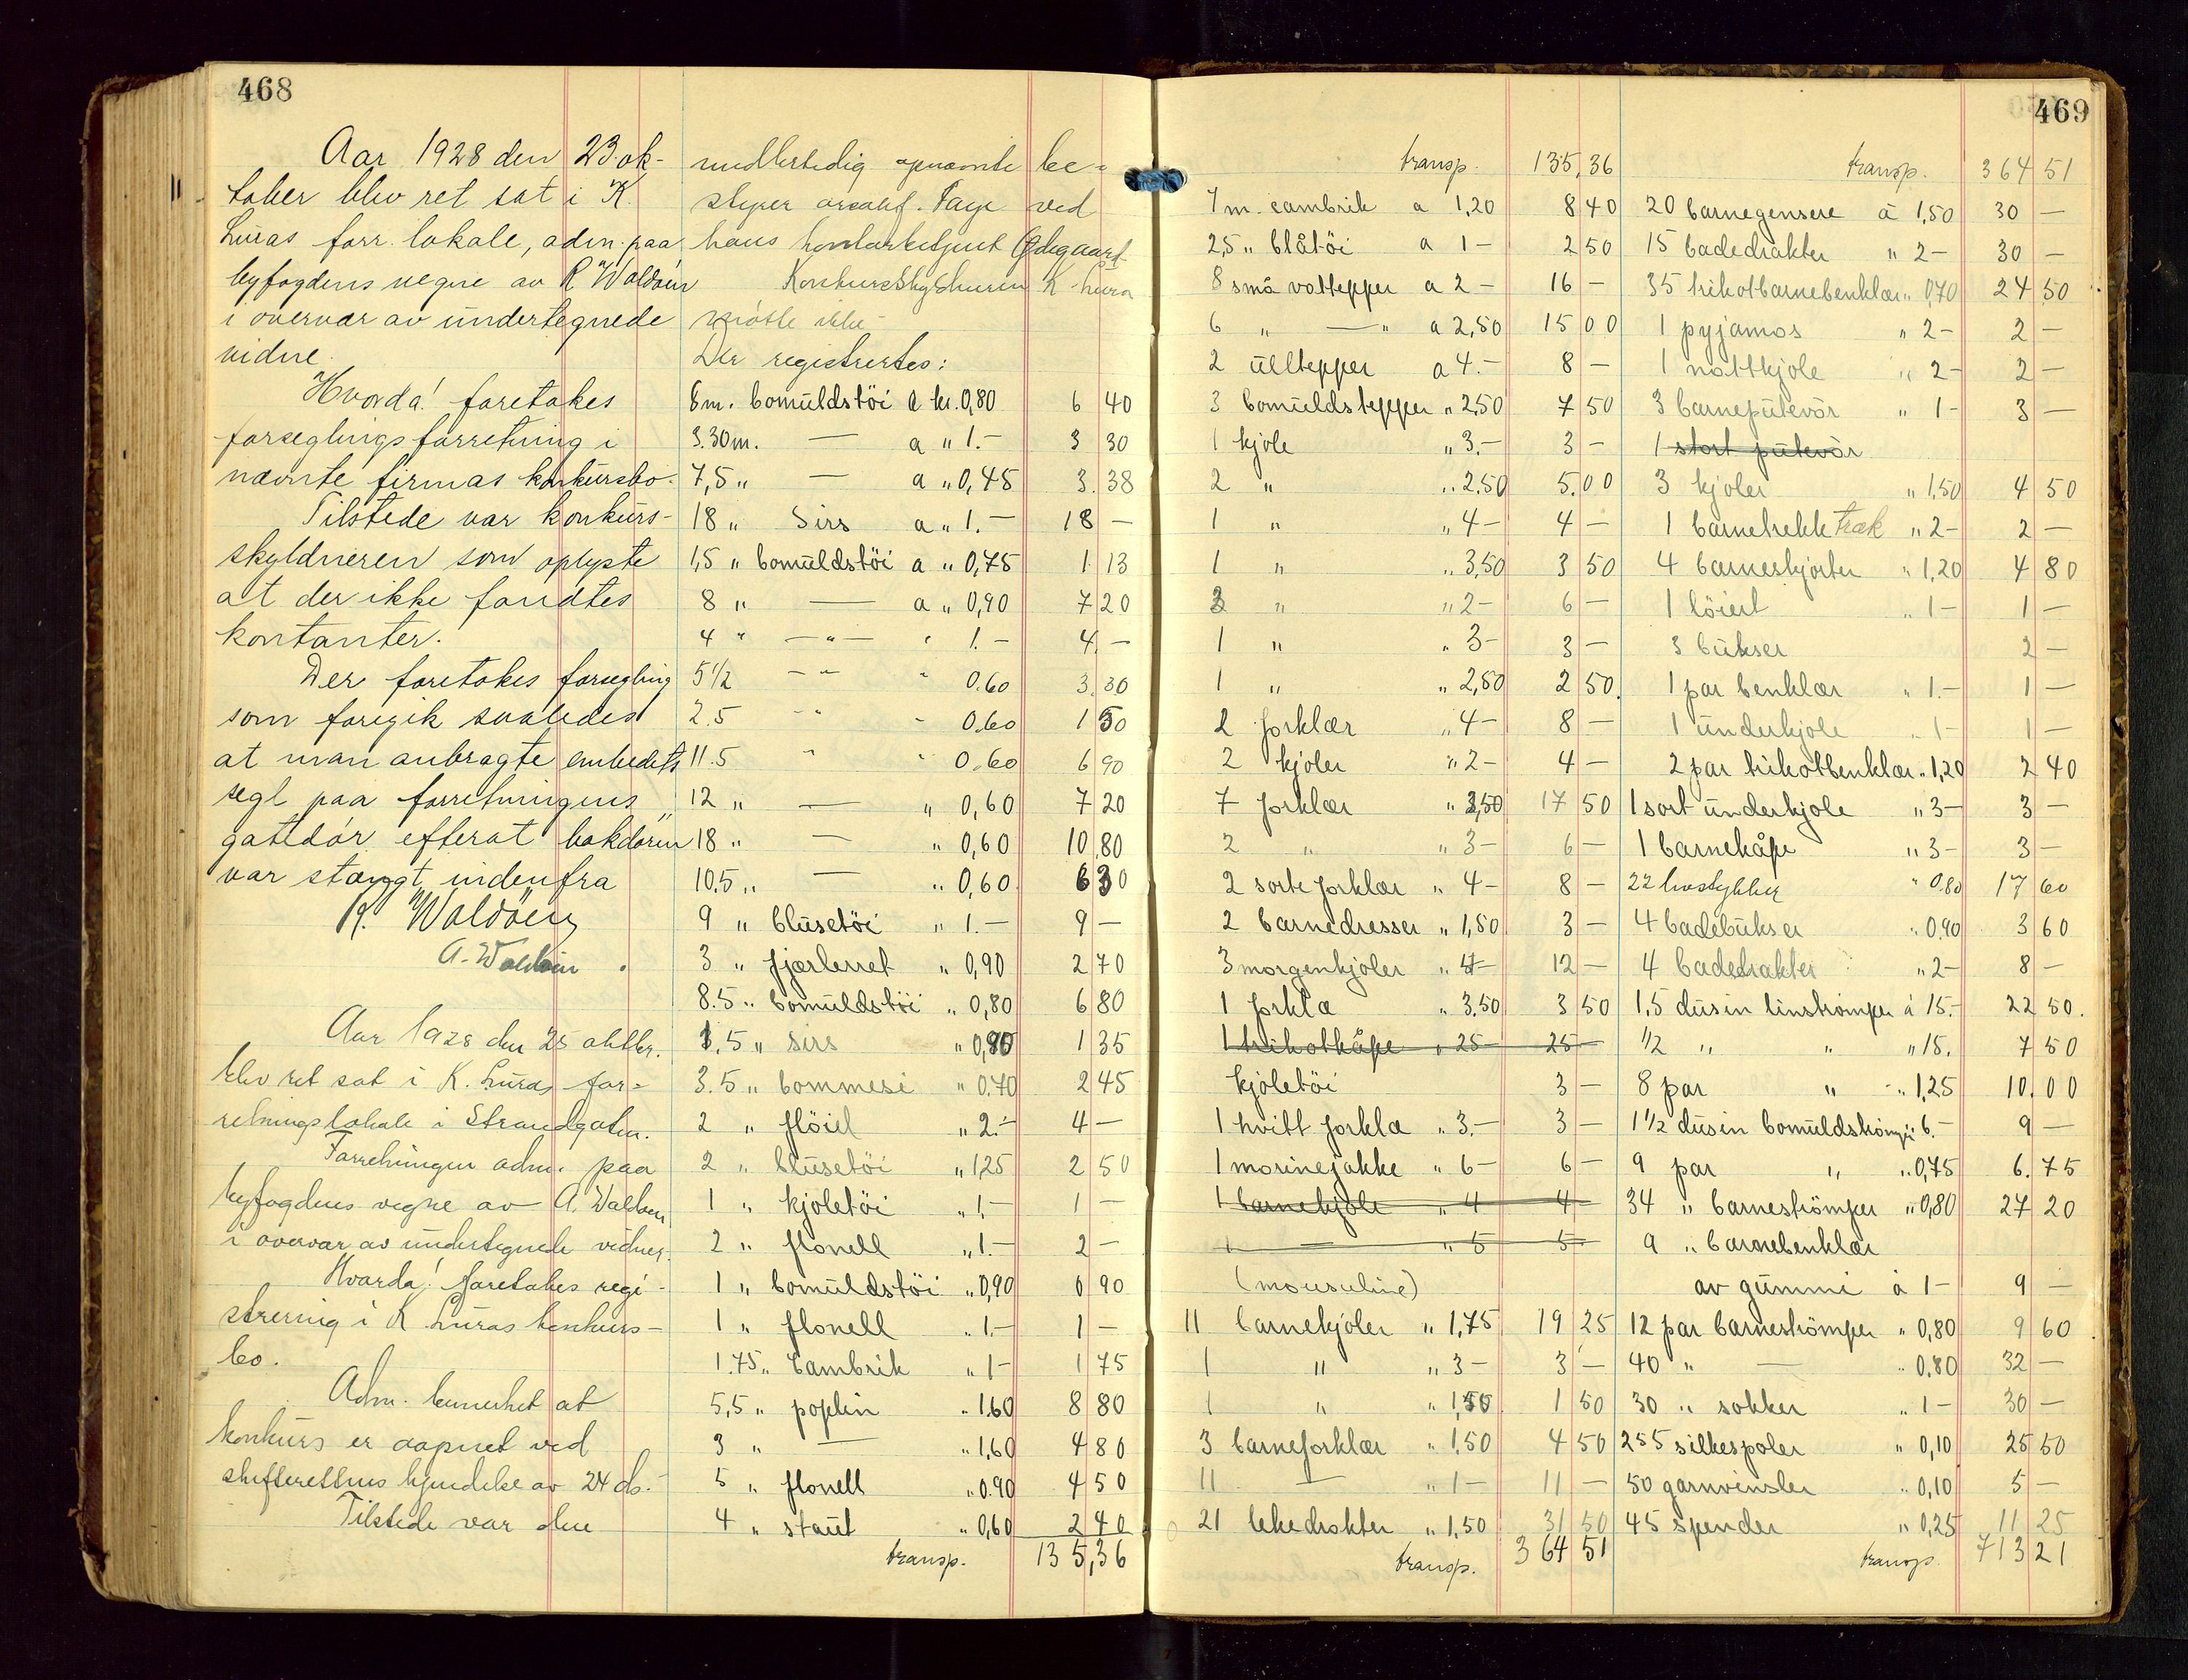 468
Aar 1928 den 23. ok-
tober blev ret sat i K.
Luras forr. lokale, adm. paa
byfogdens vegne av R Waldöen
i overvær av undertegnede
vidne.
Hvorda! foretakes
forseglingsforretning i
nævnte firmas konkursbo.
Tilstede var konkurs-
skyldneren som oplyste
at der ikke fandtes
kontanter.
Der foretokes forsegling
som foregik saaledes
at man anbragte embedets
segl paa forretningens
gatedör efterat bakdören
var stængt indenfra
R. Waldöen
A. Waldöen
Aar 1928 den 25 oktbr.
blev ret sat i K. Luras for-
retningslokale i Strandgaten.
Forretningen adm. paa
byfogdens vegne av A. Waldöen
i overvær av undertegnede vidner.
Hvorda! foretakes regi-
strering i K Luras konkurs-
bo.
Adm. bemerket at
konkurs er aapnet ved
skifterettens kjendelse av 24 ds.
Tilstede var den
midlertidig opnævnte be-
styrer orsakf. Faye ved
hans kontorbetjent Ødegaard
Konkursskyldneren K. Lura
mötte ikke
Der registrertes:
8 m. bomuldstöi a kr. 0,80 6 40
3.30 m. — a " 1.- 3 30
7,5 " — a " 0,45 3.38
18 " Sirs a " 1.- 18 -
1,5 " bomuldstöi a " 0,75 1 13
8 " — a " 0,90 7 20
4 " — " — " 1.- 4 -
5 1/2 - " - " 0.60 3.30
2.5 - " - " 0.60 1 50
11.5 " " 0.60 6 90
12 " — " 0,60 7 20
18 " — " 0,60 10 80
10.5 " — " 0,60 6 30
9 " blusetöi " 1.- 9 -
3 " fjærlerret " 0,90 2 70
8.5 " bomuldstöi " 0,80 6 80
1.5 " sirs " 0,90 1 35
3.5 " bommesi " 0.70 2 45
2 " flöiel " 2.- 4 -
2 " blusetöi " 1,25 2 50
1 " kjoletöi " 1.- 1 -
2 " flonell " 1.- 2 -
1 " bomuldstöi " 0,90 0 90
1 " flonell " 1.- 1 -
1.75 " Cambrik " 1- 1 75
5,5 " poplin " 1.60 8 80
3 " — " 1,60 4 80
5 " flonell " 0.90 4 50
4 " staut " 0,60 2 40
transp. 135,36
469
transp. 135,36
7 m. cambrik a 1,20 8 40
2,5 " blåtöi a 1- 2 50
8 små vattepper a 2- 16 -
6 " — " a 2,50 15 00
2 ulltepper a 4.- 8 -
3 bomuldstepper " 2.50 7 50
1 kjole " 3.- 3 -
2 " " 2.50 5.00
1 " " 4- 4 -
1 " " 3,50 3 50
3 " " 2- 6 -
1 " " 3- 3 -
1 " " 2,50 2 50.
2 forklær " 4- 8 -
2 kjoler " 2- 4 -
7 forklær " 2,50 17 50
2 " " 3- 6 -
2 sorte forklær " 4- 8 -
2 barnedresser " 1,50 3 -
3 morgenkjoler " 4- 12 -
1 forkla " 3.50 3 50
1 trikotkåpe " 25- 25 -
kjoletöi 3 -
1 hvitt forkla " 3.- 3 -
1 marinejakke " 6- 6 -
1 barnekjole " 4 4 -
1 — " 5 5 -
(mousseline)
11 barnekjoler " 1,75 19 25
1 " " 3- 3 -
1 " " 1,50 1 50
3 barneforklær " 1,50 4 50
11 — " 1- 11 -
21 lekedrakter " 1,50 31 50
transp. 364 51
transp. 364 51
20 barnegensere á 1,50 30 -
15 badedrakter " 2- 30 -
35 trikotbarnebenklær " 0,70 24 50
1 pyjamas " 2- 2 -
1 nattkjole " 2- 2 -
3 barneputevör " 1- 3 -
1 stort putevör
3 kjoler " 1,50 4 50
1 barnetrekk træk " 2- 2 -
4 barneskjorter " 1,20 4 80
1 löiert " 1- 1 -
3 bukser 2 -
1 par benklær " 1.- 1 -
1 underkjole " 1- 1 -
2 par trikotbenklær " 1,20 2 40
1 sort underkjole " 3- 3 -
1 barnekåpe " 3- 3 -
22 livstykker " 0.80 17 60
4 badebukser " 0.90 3 60
4 badedrakter " 2- 8 -
1,5 dusin linströmper á 15.- 22 50.
1/2 " " " 15. 7 50
8 par " " 1,25 10.00
1 1/2 dusin bomuldströmper 6.- 9 -
9 par " " 0,75 6.75
34 " barneströmper " 0,80 27 20
9 " barnebenklær
av gummi á 1- 9 -
12 par barneströmper " 0,80 9 60
40 " — " 0.80 32 -
30 " sokker " 1- 30 -
255 silkespoler " 0,10 25 50
50 garnvinsler " 0,10 5 -
45 spender " 0,25 11 25
transp. 713 21